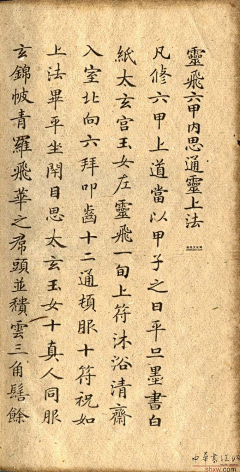 靈飛六甲內思通靈上法
凡修六甲上道當以甲子之日平旦墨書白
紙太玄宮玉女左靈飛一旬上符沐浴清齋
入室北向六拜叩齒十二通頓服十符祝如
上法畢平坐閉目思太玄玉女十真人同服
玄錦帔青羅飛華之帬頭並穨雲三角髻餘
shxw.com